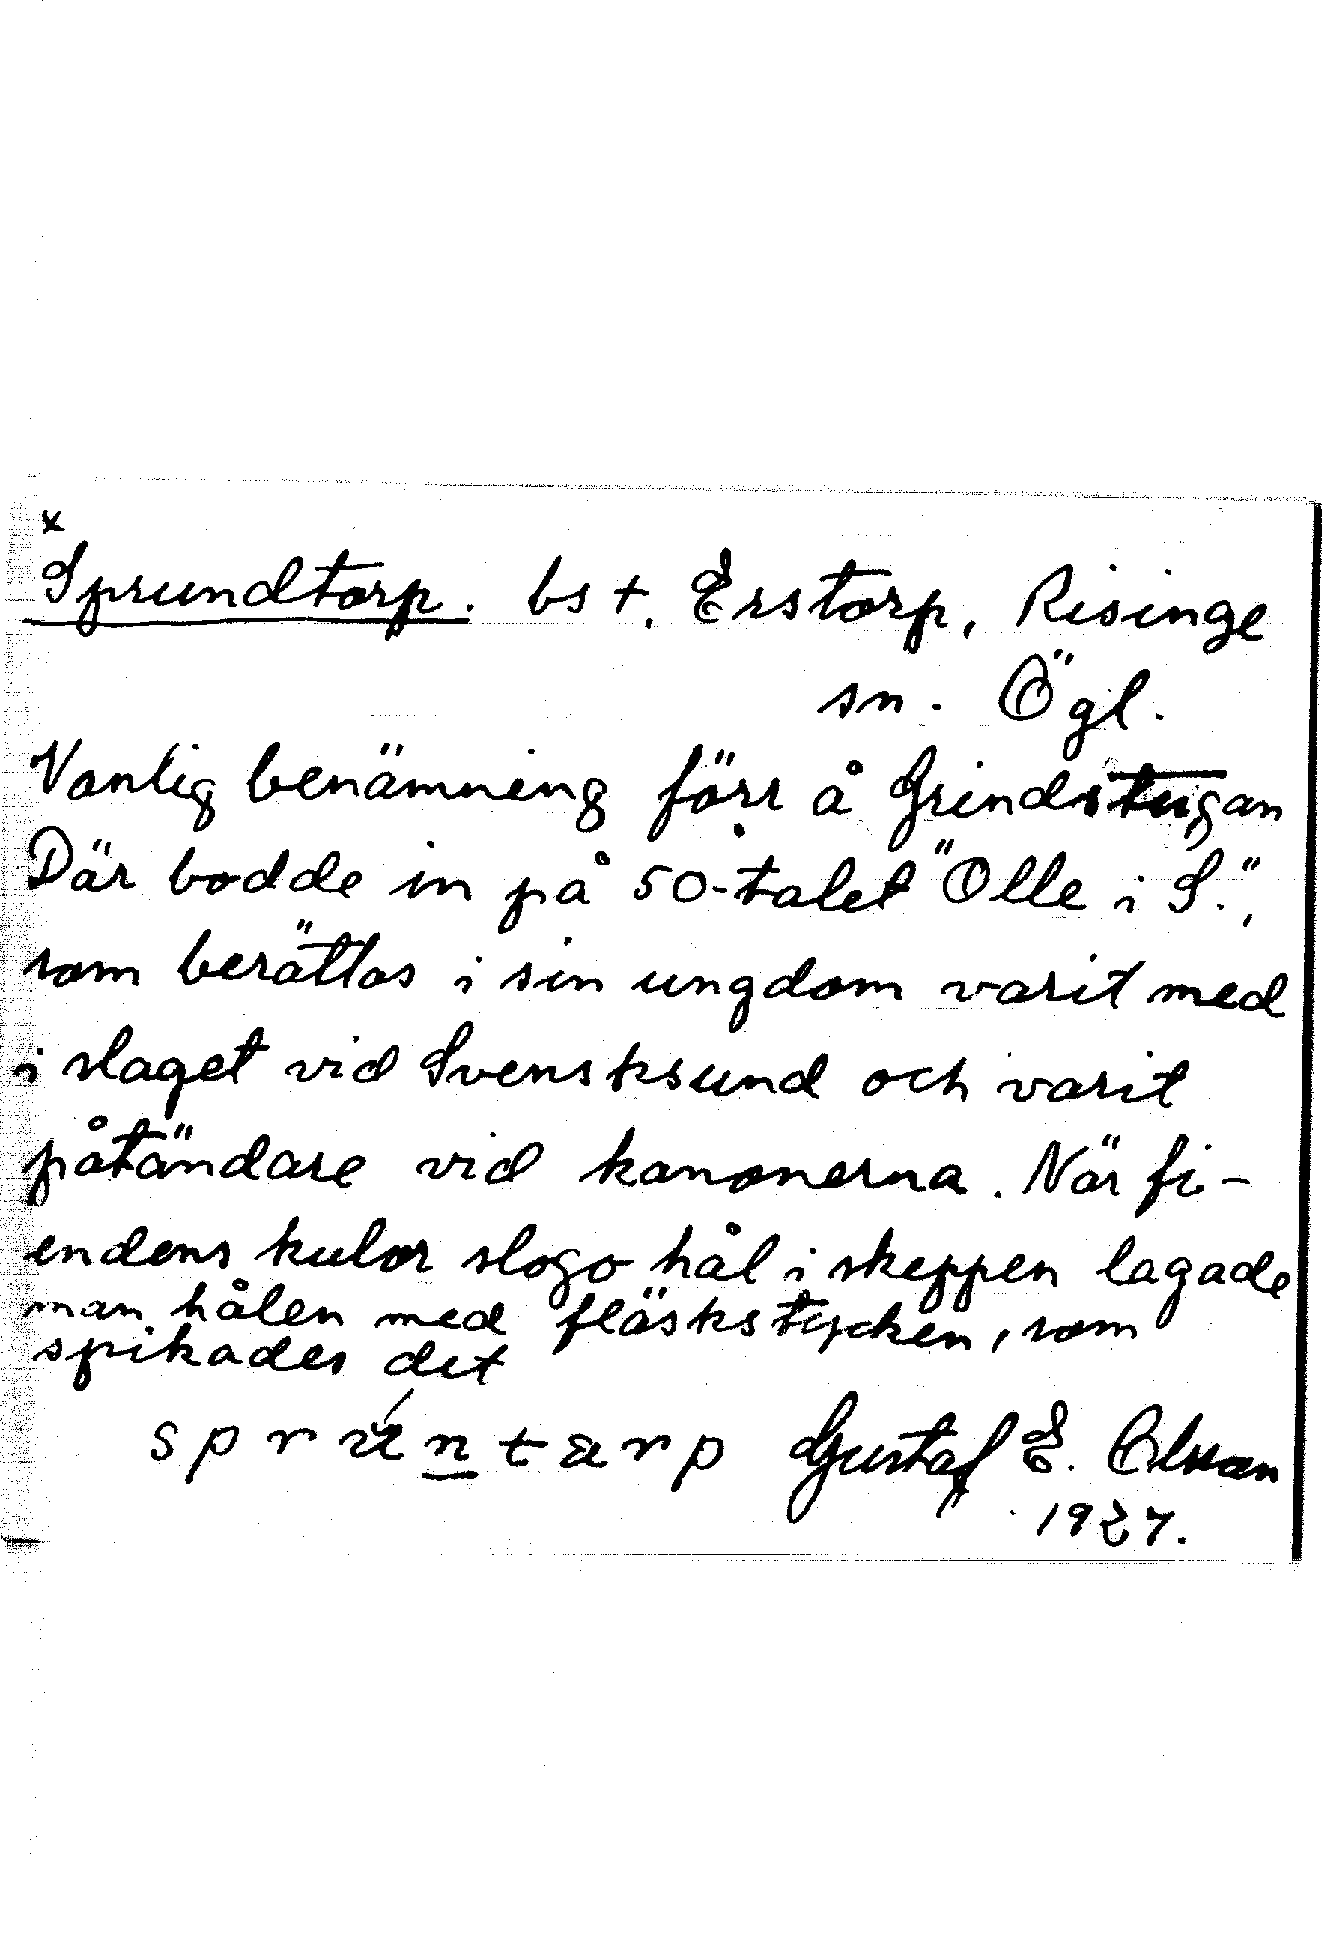 x
Sprundtorp. bs +. Erstorp, Risinge
sn. Ögl.
Vanlig benämning förr å Grindstugan
Där bodde in på 50-talet "Olle i S.",
som berättas i sin ungdom varit med
i slaget vid Svensksund och varit
påtändare vid kanonerna. När fi-
endens kulor slogo hål i skeppen lagade
man hålen med fläskstycken, som
spikades dit
Gustaf E. Olsson
1927.